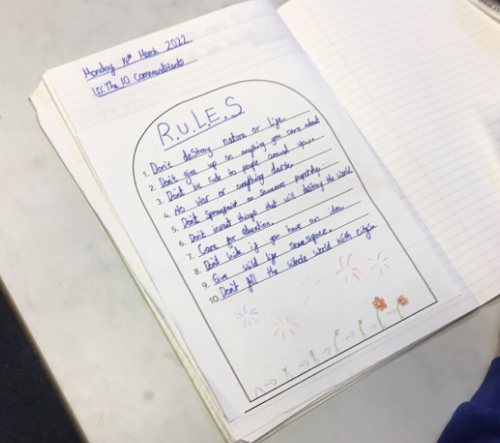 Monday March 2022
LO: The 10 Commandments
R.U.L.E.S
1. Don't destroy nature or life.
2. Don't give up on anything you care about
3. Don't be rude to people around you
4. No war or anything dark.
5. Don't on someones property.
6. Don't invent things that will destroy the world.
7. Care for education.
8. Don't hide if you have an idea.
9. Give wild life some space.
10. Don't fill the whole world with